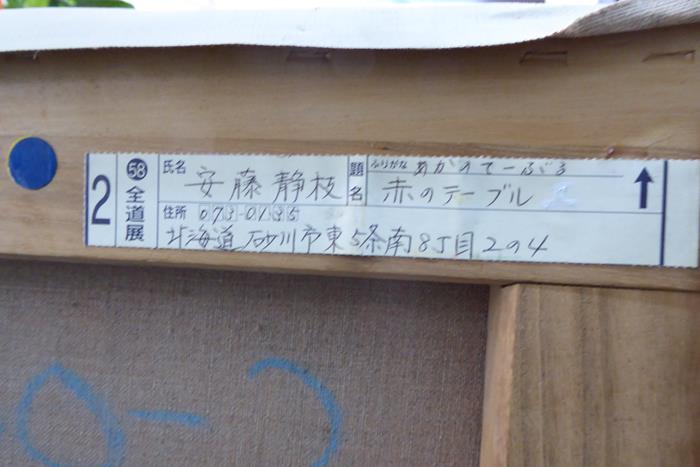 2
58 全道展
氏名 安藤静枝
題名 ふりがな あかのてーぶる
赤のテーブル
住所 073-0135
北海道砂川市東5条南8丁目2の4